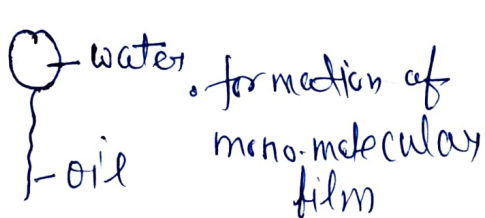 water
. formation of
mono-molecular
- oil
film